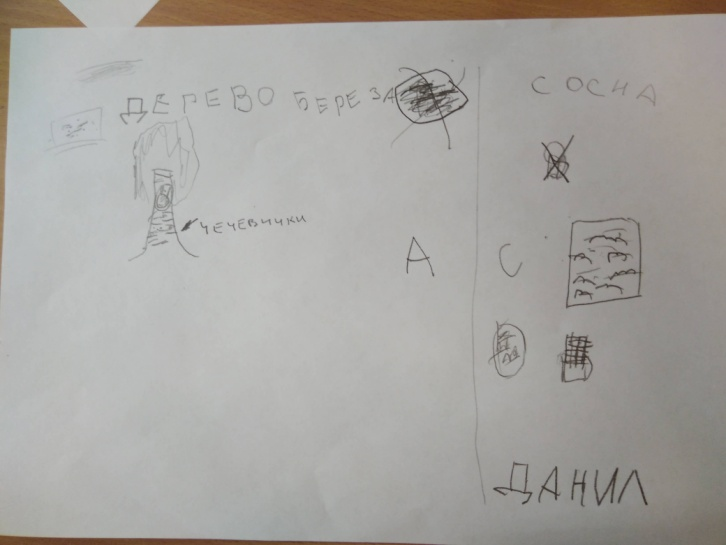 ДЕРЕВО БЕРЕЗА
ЧЕЧЕВИЧКИ
А
СОСНА
С
ДАНИЛ